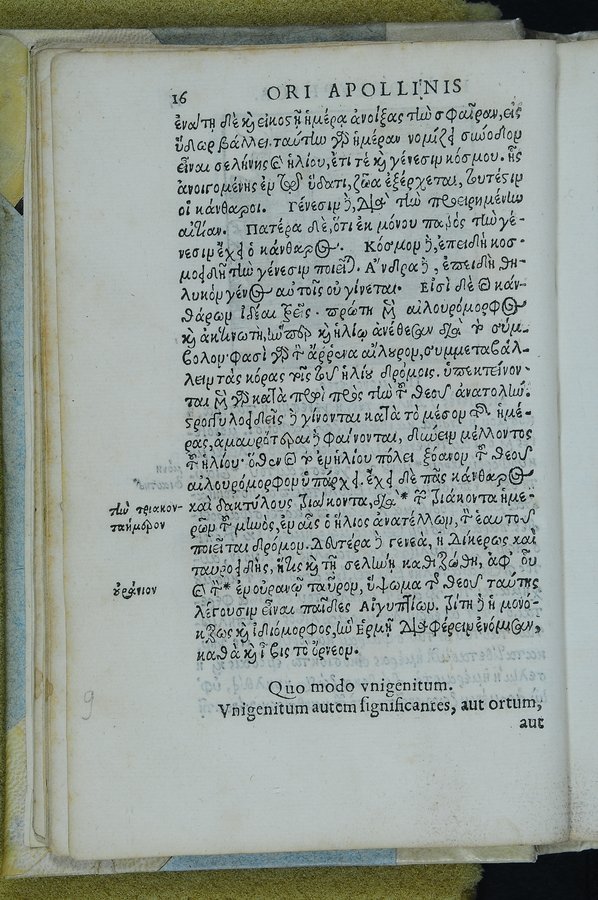 16 ORI APOLLINIS
ἐνάτῃ δὲ καὶ εἰκοστῇ ἡμέρᾳ ἀνοίξας τὴν σφαῖραν, εἰς
ὕδωρ βάλλει. ταύτην γὰρ ἡμέραν νομίζει σύνοδον
εἶναι σελήνης καὶ ἡλίου, ἔτι τε καὶ γένεσιν κόσμου. ἧς
ἀνοιγομένης ἐν τῷ ὕδατι, ζῶα ἐξέρχεται, τουτέστιν
οἱ κάνθαροι. Γένεσιν δὲ, διὰ τὴν προειρημένην
αἰτίαν. Πατέρα δὲ, ὅτι ἐκ μόνου πατρὸς τὴν γέ-
νεσιν ἔχει ὁ κάνθαρος. Κόσμον δὲ, ἐπειδὴ κοσ-
μοειδῆ τὴν γένεσιν ποιεῖται. Ἄνδρα δὲ, ἐπειδὴ θη-
λυκὸν γένος αὐτοῖς οὐ γίνεται. Εἰσὶ δὲ καὶ καν-
θάρων ἰδέαι τρεῖς. πρώτη μὲν αἰλουρόμορφος
καὶ ἀκτινωτὴ, ἥνπερ καὶ ἡλίῳ ἀνέθεσαν διὰ τὸ σύμ-
βολον. φασὶ γὰρ τὸν ἄρρενα αἴλουρον, συμμεταβάλ-
λειν τὰς κόρας τοῖς τοῦ ἡλίου δρόμοις. ὑπεκτείνον-
ται μὲν γὰρ κατὰ πρωῒ πρὸς τὴν τοῦ θεοῦ ἀνατολήν.
στρογγυλοειδεῖς δὲ γίνονται κατὰ τὸ μέσον τῆς ἡμέ-
ρας, ἀμαυρότεραι δὲ φαίνονται, δύνειν μέλλοντος
τοῦ ἡλίου. ὅθεν καὶ τὸ ἐν ἡλίου πόλει ξόανον τοῦ θεοῦ
αἰλουρόμορφον ὑπάρχει. ἔχει δὲ πᾶς κάνθαρος
καὶ δακτύλους τριάκοντα, διὰ * τὴν τριάκοντα ἡμε-
ρῶν τοῦ μηνὸς, ἐν αἷς ὁ ἥλιος ἀνατέλλων, τὸν ἑαυτοῦ
ποιεῖται δρόμον. Δευτέρα δὲ γενεὰ, ἡ δίκερως καὶ
ταυροειδὴς, ἥτις καὶ τῇ σελήνῃ καθιερώθη, ἀφ' οὗ
καὶ τὸν * ἐν οὐρανῷ ταῦρον, ὕψωμα τῆς θεοῦ ταύτης
λέγουσιν εἶναι παῖδες Αἰγυπτίων. Τρίτη δὲ ἡ μονό-
κερως καὶ ἰδιόμορφος, ἣν Ἑρμῇ διαφέρειν ἐνόμισαν,
καθὰ καὶ ἶβις τὸ ὄρνεον.
τὴν τριακον-
ταήμερον
οὐράνιον
Quo modo vnigenitum.
Vnigenitum autem significantes, aut ortum,
aut
9